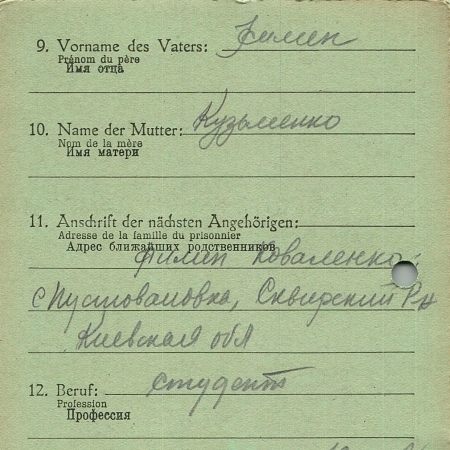 9. Vorname des Vaters: Филип
Prénom du père
Имя отца
10. Name der Mutter: Кузьменко
Nom de la mère
Имя матери
11. Anschrift der nächsten Angehörigen:
Adresse de la famille du prisonnier
Адрес ближайших родственников
Филип Коваленко
с Пустовановка, Сквирский Рн
Киевская обл
12. Beruf: студент
Profession
Профессия